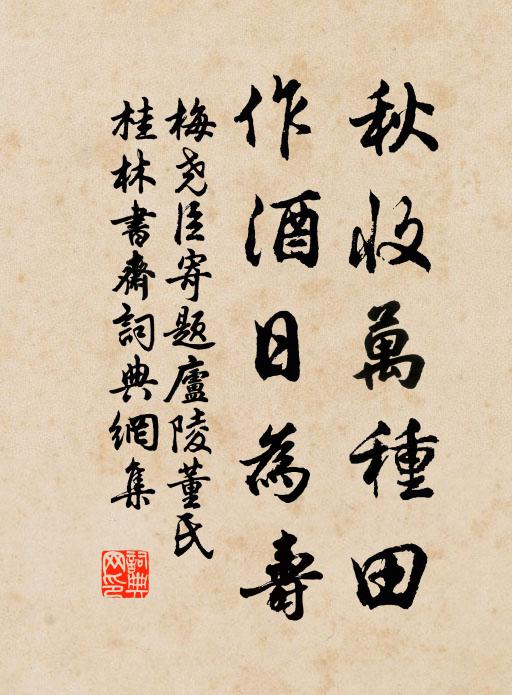 秋收萬種田
作酒日為壽
梅尧臣寄题廬陵董氏
桂林書齋詞典網集
詞典
网印